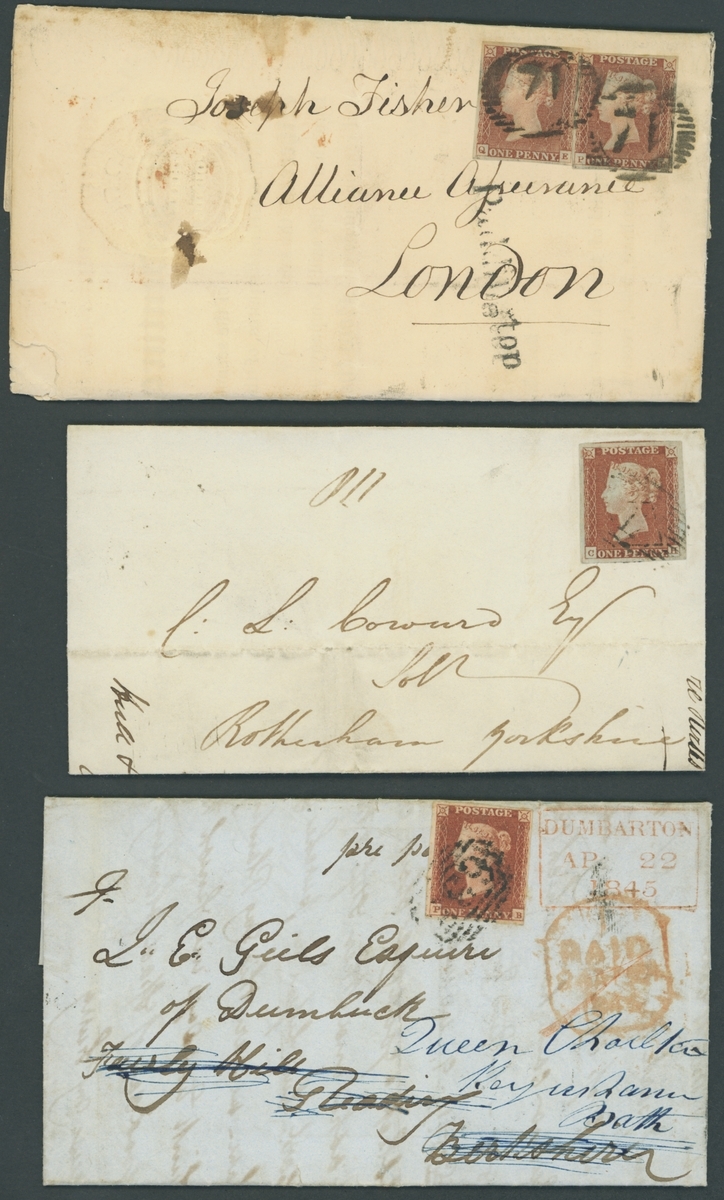 POSTAGE POSTAGE
71 71
Q ONE PENNY E P ONE PENNY
Joseph Fisher
Alliance Assurance
London
POSTAGE
C ONE PENNY
C: L: Coward Esq
Solr
Rotherham Yorkshire
Hull &
POSTAGE
P ONE PENNY B
DUMBARTON
AP 22
1845
PAID
pre
J. E. Geils Esquire
of Dumbuck
Fairly Hill
Reading
Berkshire
Queen Charlton
Keynsham
Bath